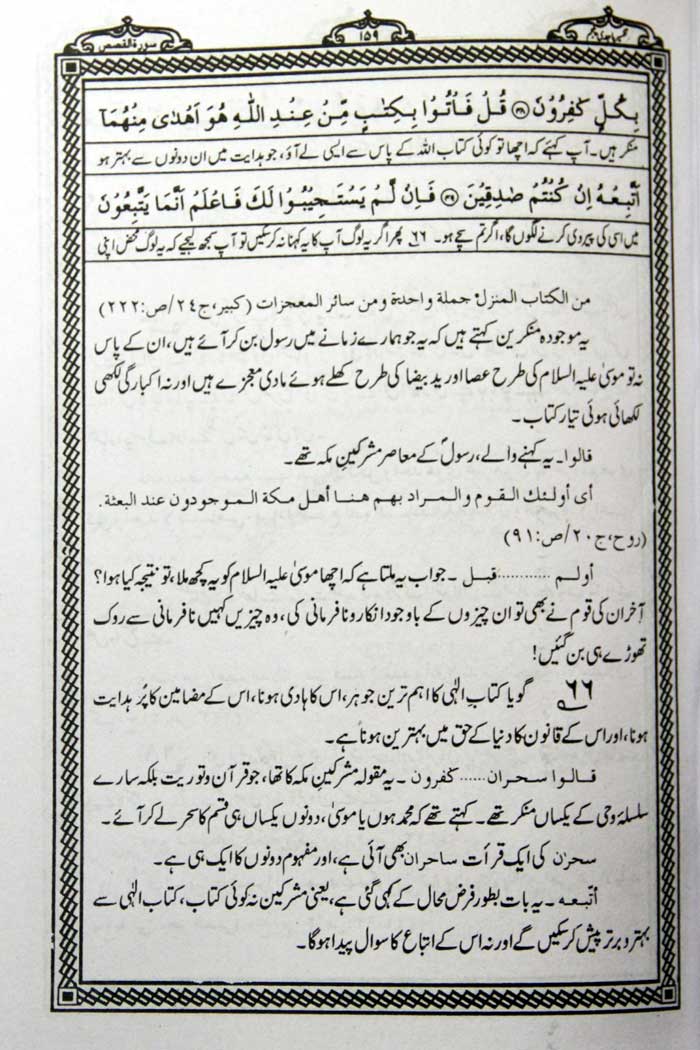 تفسیر ماجدی پنجم
۱۵۹
سورة القصص
بِكُلٍّ كٰفِرُوْنَ ﴿۴۸﴾ قُلْ فَاْتُوْا بِكِتٰبٍ مِّنْ عِنْدِ اللّٰهِ هُوَ اَهْدٰى مِنْهُمَآ
منکر ہیں۔ آپ کہئے کہ اچھا تو کوئی کتاب اللہ کے پاس سے ایسی لے آؤ، جو ہدایت میں ان دونوں سے بہتر ہو
اَتَّبِعْهُ اِنْ كُنْتُمْ صٰدِقِيْنَ ﴿۴۹﴾ فَاِنْ لَّمْ يَسْتَجِيْبُوْا لَكَ فَاعْلَمْ اَنَّمَا يَتَّبِعُوْنَ
میں اسی کی پیروی کرنے لگوں گا، اگر تم سچے ہو۔ ۶۶ پھر اگر یہ لوگ آپ کا یہ کہنا نہ کر سکیں تو آپ سمجھ لیجیے کہ یہ لوگ محض اپنی
من الكتاب المنزل جملة واحدة ومن سائر المعجزات (کبیر، ج۲۴/ص:۲۲۲)
یہ موجودہ منکرین کہتے ہیں کہ یہ جو ہمارے زمانے میں رسول بن کر آئے ہیں، ان کے پاس
نہ تو موسیٰ علیہ السلام کی طرح عصا اور ید بیضا کی طرح کھلے ہوئے مادی معجزے ہیں اور نہ اکبارگی لکھی
لکھائی ہوئی تیار کتاب۔
قالوا۔ یہ کہنے والے، رسولؐ کے معاصر مشرکینِ مکہ تھے۔
أى أولئك القوم والمراد بهم هنا أهل مكة الموجودون عند البعثة.
(روح، ج۲۰/ص:۹۱)
أولم ............ قبل۔ جواب یہ ملتا ہے کہ اچھا موسیٰ علیہ السلام کو یہ کچھ ملا، تو نتیجہ کیا ہوا؟
آخر ان کی قوم نے بھی تو ان چیزوں کے باوجود انکار و نافرمانی کی، وہ چیزیں کہیں نافرمانی سے روک
تھوڑے ہی بن گئیں!
۶۶ گویا کتاب الٰہی کا اہم ترین جوہر، اس کا ہادی ہونا، اس کے مضامین کا پُر ہدایت
ہونا، اور اس کے قانون کا دنیا کے حق میں بہترین ہونا ہے۔
قالوا سحران...... كٰفرون۔ یہ مقولہ مشرکینِ مکہ کا تھا، جو قرآن و توریت بلکہ سارے
سلسلۂ وحی کے یکساں منکر تھے۔ کہتے تھے کہ محمد ہوں یا موسیٰ، دونوں یکساں ہی قسم کا سحر لے کر آئے۔
سحرٰن کی ایک قرأت ساحران بھی آئی ہے، اور مفہوم دونوں کا ایک ہی ہے۔
أتّبعه۔ یہ بات بطور فرض محال کے کہی گئی ہے، یعنی مشرکین نہ کوئی کتاب، کتاب الٰہی سے
بہتر و برتر پیش کر سکیں گے اور نہ اس کے اتباع کا سوال پیدا ہوگا۔